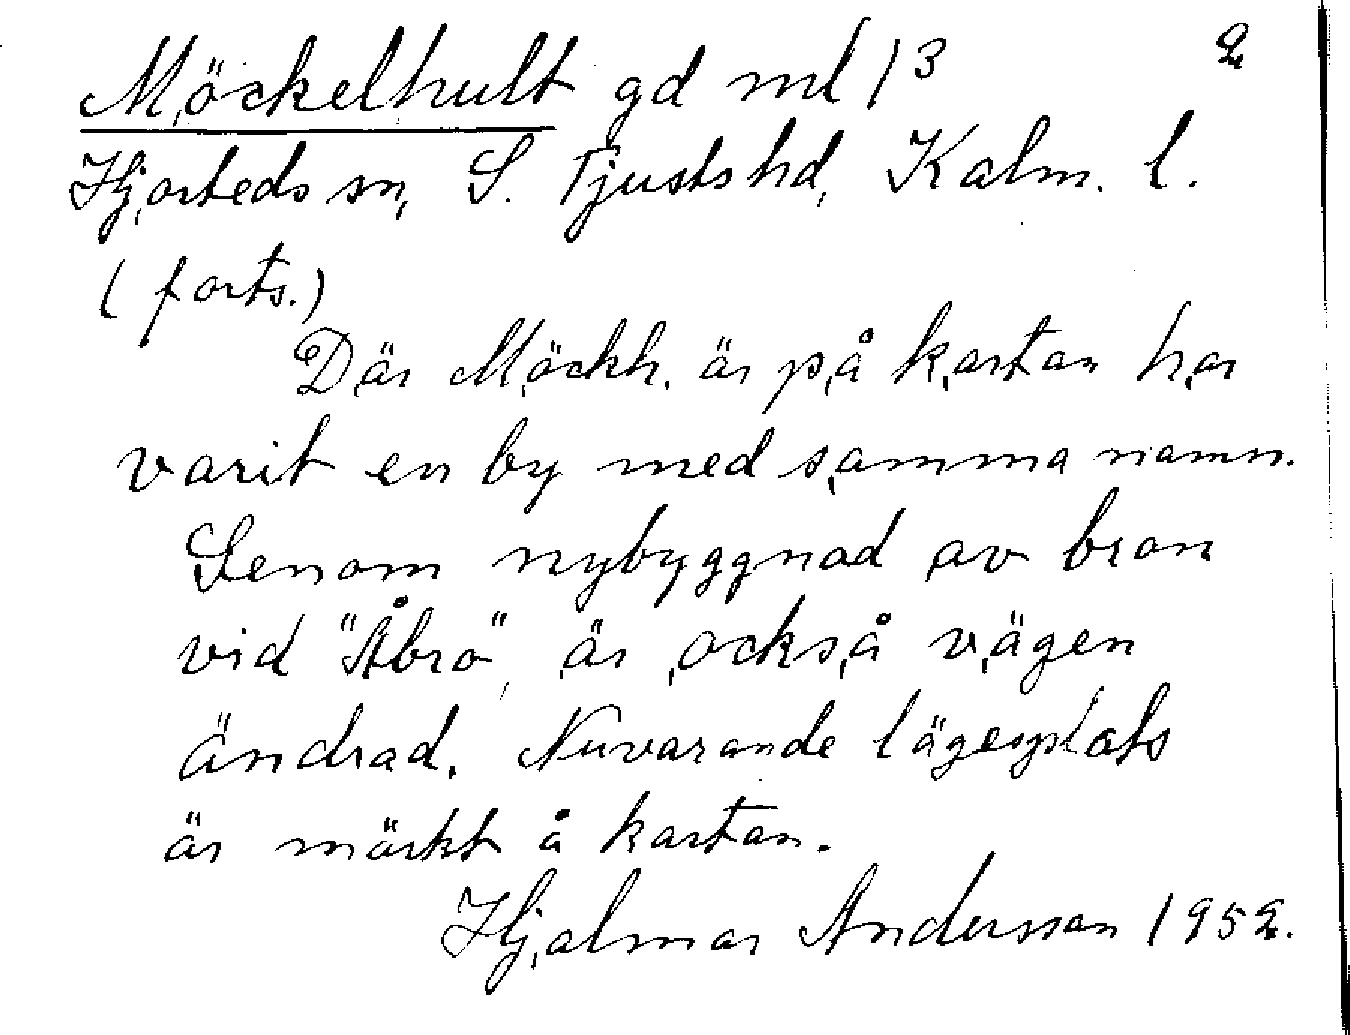 Möckelhult gd ml 13 2
Hjorteds sn, S. Tjusts hd, Kalm. l.
(forts.)
Där Möckh. är på kartan har
varit en by med samma namn.
Genom nybyggnad av bron
vid "Åbro", är också vägen
ändrad. Nuvarande lägesplats
är märkt å kartan.
Hjalmar Andersson 1952.